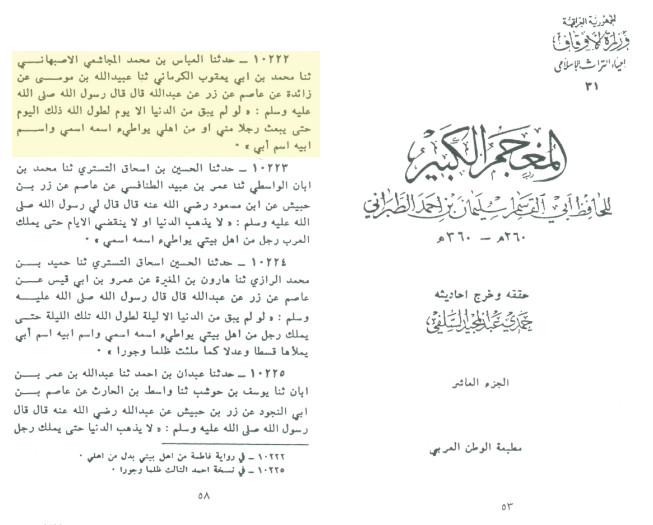 الجمهورية العراقية
وزارة الأوقاف
إحياء التراث الإسلامي
٣١
المعجم الكبير
للحافظ أبي القاسم سليمان بن أحمد الطبراني
٢٦٠هـ – ٣٦٠هـ
حققه وخرج احاديثه
حمدي عبد المجيد السلفي
الجزء العاشر
مطبعة الوطن العربي
٥٣
١٠٢٢٢ – حدثنا العباس بن محمد المجاشعي الاصبهاني
ثنا محمد بن ابي يعقوب الكرماني ثنا عبيدالله بن موسى عن
زائدة عن عاصم عن زر عن عبدالله قال قال رسول الله صلى الله
عليه وسلم : « لو لم يبق من الدنيا الا يوم لطول الله ذلك اليوم
حتى يبعث رجلا مني او من اهلي يواطيء اسمه اسمي واسم
ابيه اسم أبي » ٠
١٠٢٢٣ – حدثنا الحسين بن اسحاق التستري ثنا محمد بن
ابان الواسطي ثنا عمر بن عبيد الطنافسي عن عاصم عن زر بن
حبيش عن ابن مسعود رضي الله عنه قال قال لي رسول الله صلى
الله عليه وسلم : « لا يذهب الدنيا او لا ينقضي الايام حتى يملك
العرب رجل من اهل بيتي يواطيء اسمه اسمي » ٠
١٠٢٢٤ – حدثنا الحسين اسحاق التستري ثنا حميد بن
محمد الرازي ثنا هارون بن المغيرة عن عمرو بن ابي قيس عن
عاصم عن زر عن عبدالله قال قال رسول الله صلى الله عليه
وسلم : « لو لم يبق من الدنيا الا ليلة لطول الله تلك الليلة حتى
يملك رجل من اهل بيتي يواطيء اسمه اسمي واسم ابيه اسم أبي
يملأها قسطا وعدلا كما ملئت ظلما وجورا » ٠
١٠٢٢٥ – حدثنا عبدان بن احمد ثنا عبدالله بن عمر بن
ابان ثنا يوسف بن حوشب ثنا واسط بن الحارث عن عاصم بن
ابي النجود عن زر بن حبيش عن عبدالله رضي الله عنه قال قال
رسول الله صلى الله عليه وسلم : « لا يذهب الدنيا حتى يملك رجل
١٠٢٢٢ – في رواية فاطمة من اهل بيتي بدل من اهلي ٠
١٠٢٢٥ – في نسخة احمد الثالث ظلما وجورا ٠
٥٨